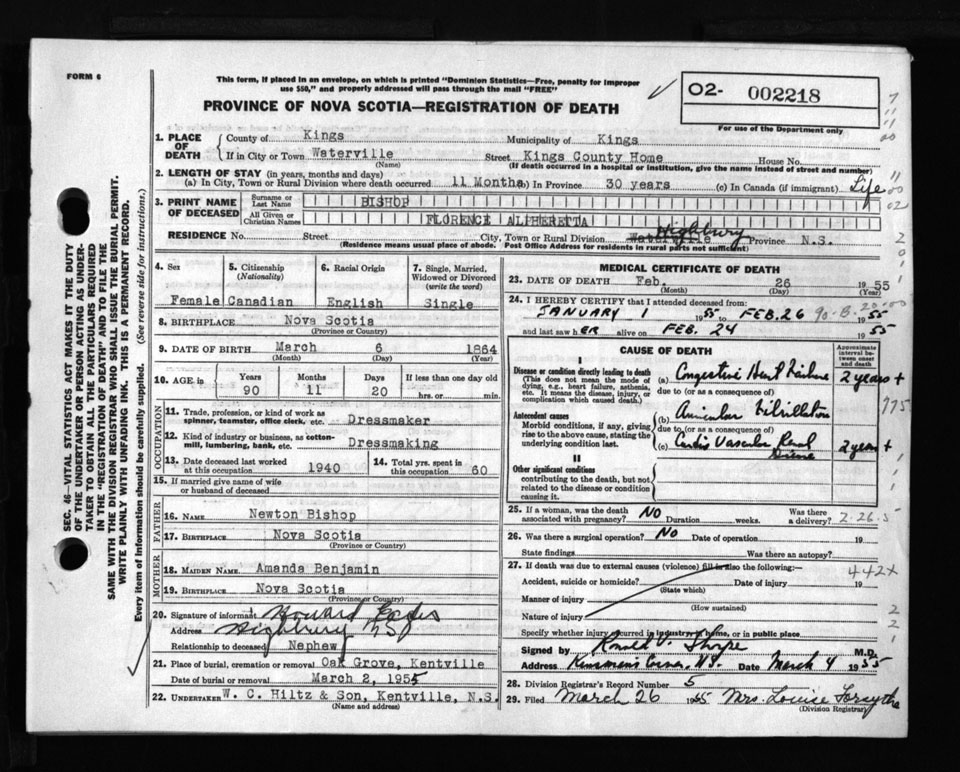 FORM 6
This form, if placed in an envelope, on which is printed "Dominion Statistics—Free, penalty for improper
use $50," and properly addressed will pass through the mail "FREE"
PROVINCE OF NOVA SCOTIA—REGISTRATION OF DEATH
02- 002218
For use of the Department only
1. PLACE OF DEATH
County of Kings Municipality of Kings
If in City or Town Waterville Street Kings County Home House No.
(Name) (If death occurred in a hospital or institution, give the name instead of street and number)
2. LENGTH OF STAY (in years, months and days)
(a) In City, Town or Rural Division where death occurred 11 Months (b) In Province 30 years (c) In Canada (if immigrant) Life
3. PRINT NAME OF DECEASED
Surname or Last Name BISHOP
All Given or Christian Names FLORENCE ALPHERETTA
RESIDENCE No. Street City, Town or Rural Division Waterville Highbury Province N.S.
(Residence means usual place of abode. Post Office Address for residents in rural parts not sufficient)
4. Sex Female
5. Citizenship (Nationality) Canadian
6. Racial Origin English
7. Single, Married, Widowed or Divorced (write the word) Single
8. BIRTHPLACE Nova Scotia
(Province or Country)
9. DATE OF BIRTH March 6 1864
(Month) (Day) (Year)
10. AGE in Years 90 Months 11 Days 20 If less than one day old hrs. or min.
OCCUPATION
11. Trade, profession, or kind of work as spinner, teamster, office clerk, etc. Dressmaker
12. Kind of industry or business, as cotton-mill, lumbering, bank, etc. Dressmaking
13. Date deceased last worked at this occupation 1940
14. Total yrs. spent in this occupation 60
15. If married give name of wife or husband of deceased
FATHER
16. NAME Newton Bishop
17. BIRTHPLACE Nova Scotia
(Province or Country)
MOTHER
18. MAIDEN NAME Amanda Benjamin
19. BIRTHPLACE Nova Scotia
(Province or Country)
20. Signature of informant Howard
Address Highbury NS
Relationship to deceased Nephew
21. Place of burial, cremation or removal Oak Grove, Kentville
Date of burial or removal March 2, 1955
22. UNDERTAKER W. C. Hiltz & Son, Kentville, N.S.
(Name and address)
MEDICAL CERTIFICATE OF DEATH
23. DATE OF DEATH Feb. 26 1955
(Month) (Day) (Year)
24. I HEREBY CERTIFY that I attended deceased from:
JANUARY 1 1955 to FEB. 26 1955
and last saw hER alive on FEB. 24 1955
CAUSE OF DEATH
Approximate interval between onset and death
I
Disease or condition directly leading to death
(This does not mean the mode of dying, e.g., heart failure, asthenia, etc. It means the disease, injury, or complication which caused death.)
(a) Congestive Heart Failure 2 years +
due to (or as a consequence of)
Antecedent causes
Morbid conditions, if any, giving rise to the above cause, stating the underlying condition last.
(b) Auricular Fibrillation
due to (or as a consequence of)
(c) Cardio Vascular Renal Disease 2 years +
II
Other significant conditions
contributing to the death, but not related to the disease or condition causing it.
25. If a woman, was the death associated with pregnancy? NO Duration weeks. Was there a delivery?
2-26-5
26. Was there a surgical operation? NO Date of operation 19
State findings Was there an autopsy?
27. If death was due to external causes (violence) fill in also the following:
442x
Accident, suicide or homicide? Date of injury 19
(State which)
Manner of injury
(How sustained)
Nature of injury
Specify whether injury occurred in industry, home, or in public place
Signed by Ronald V. Thorpe M.D.
Address Kinsmen's Corner, N.S. Date March 4 1955
28. Division Registrar's Record Number 5
29. Filed March 26 1955 Mrs. Louise Forsythe
(Division Registrar)
SEC. 46—VITAL STATISTICS ACT MAKES IT THE DUTY
OF THE UNDERTAKER OR PERSON ACTING AS UNDER-
TAKER TO OBTAIN ALL THE PARTICULARS REQUIRED
IN THE "REGISTRATION OF DEATH" AND TO FILE THE
SAME WITH THE DIVISION REGISTRAR WHO SHALL ISSUE THE BURIAL PERMIT.
WRITE PLAINLY WITH UNFADING INK. THIS IS A PERMANENT RECORD.
Every item of Information should be carefully supplied. (See reverse side for instructions.)